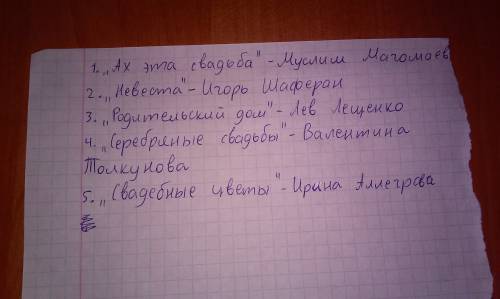 1. „Ах эта свадьба" - Муслим Магомаев
2. „Невеста" - Игорь Шаферан
3. „Родительский дом" - Лев Лещенко
4. „Серебряные свадьбы" - Валентина
Толкунова
5. „Свадебные цветы" - Ирина Аллегрова